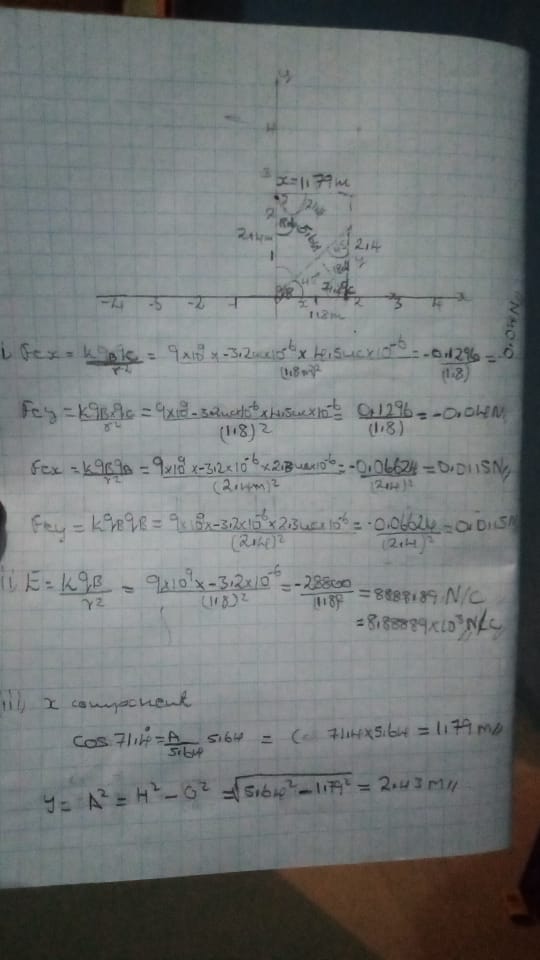 y
4
3 x=1.79m
2
2.4m
1 2.4
y
-4 -3 -2 -1 x 2 3 4 x
1.8m
i. Fcx = kqBqc/r² = 9x10⁹ x -3.2ucx10⁻⁶ x 4.5ucx10⁻⁶/(1.8m)² = -0.1296/(1.8) = -0.04N//
Fcy = kqBqc/r² = 9x10⁹ -3.2ucx10⁻⁶ x 4.5ucx10⁻⁶/(1.8)² = 0.1296/(1.8) = -0.04N
Fcx = kqBqA/r² = 9x10⁹ x -3.2x10⁻⁶ x 2.3ucx10⁻⁶/(2.4m)² = -0.06624/(2.4)² = 0.0115N//
Fcy = kqBqB/r² = 9x10⁹ x -3.2x10⁻⁶ x 2.3ucx10⁻⁶/(2.4)² = -0.06624/(2.4)² = 0.0115N
ii. E = kqB/r² = 9x10⁹ x -3.2x10⁻⁶/(1.8)² = -28800/(1.8)² = 8888.89 N/C
= 8.88889x10³ N/C//
iii, x component
cos 71.4° = A/5.64 5.64 = 71.4x5.64 = 1.79 m//
y = A² = H² - O² = √5.64² - 1.79² = 2.43 M//